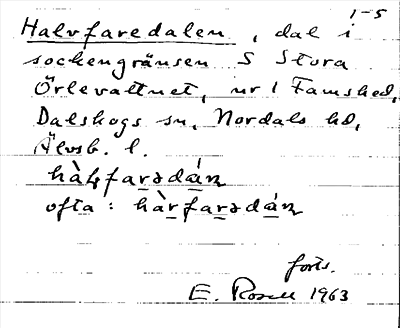 1-5
Halvfaredalen, dal i
sockengränsen S Stora
Örlevattnet, nr 1 Famshed,
Dalskogs sn, Nordals hd,
Älvsb. l.
ofta :
forts.
E. Rosell 1963